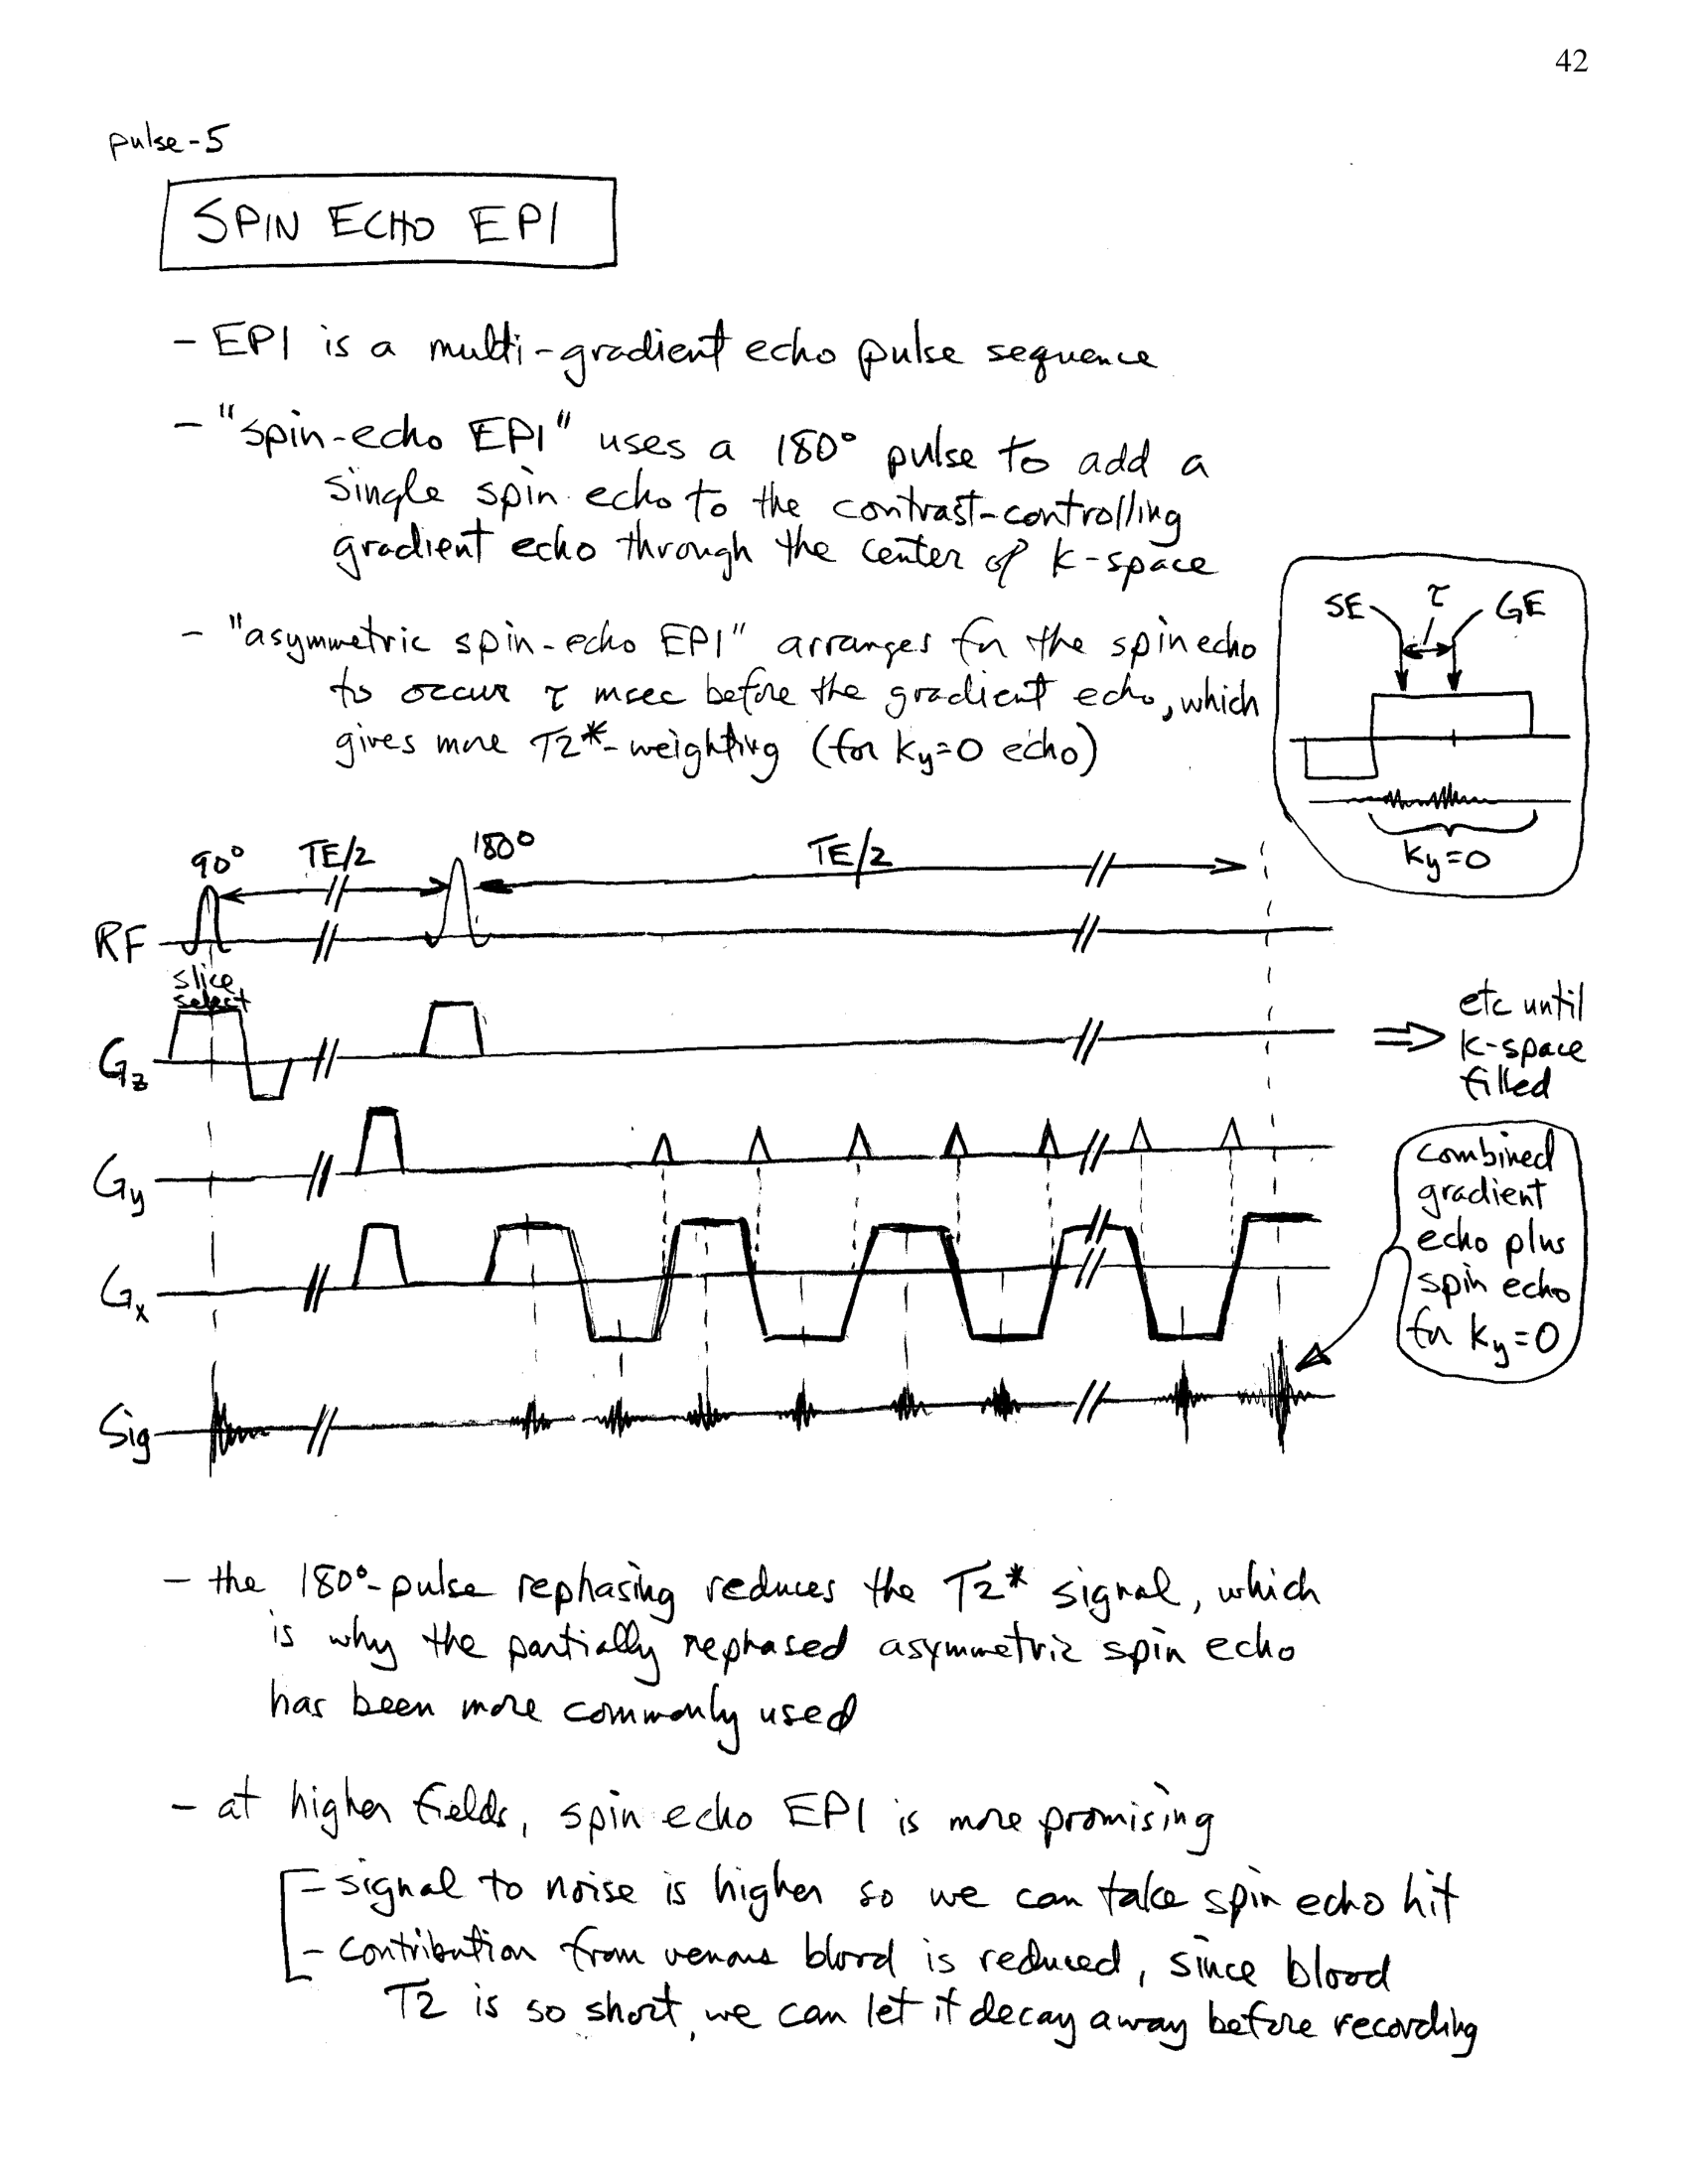 42
pulse-5
SPIN ECHO EPI
- EPI is a multi-gradient echo pulse sequence
- "spin-echo EPI" uses a 180° pulse to add a
single spin echo to the contrast-controlling
gradient echo through the center of k-space
- "asymmetric spin-echo EPI" arranges for the spin echo
to occur τ msec before the gradient echo, which
gives more T2*-weighting (for ky=0 echo)
SE τ GE
ky=0
90° TE/2 180° TE/2
RF
slice
select
Gz
etc until
k-space
filled
Gy
Gx
Sig
combined
gradient
echo plus
spin echo
for ky=0
- the 180°-pulse rephasing reduces the T2* signal, which
is why the partially rephased asymmetric spin echo
has been more commonly used
- at higher fields, spin echo EPI is more promising
- signal to noise is higher so we can take spin echo hit
- contribution from venous blood is reduced, since blood
T2 is so short, we can let it decay away before recording